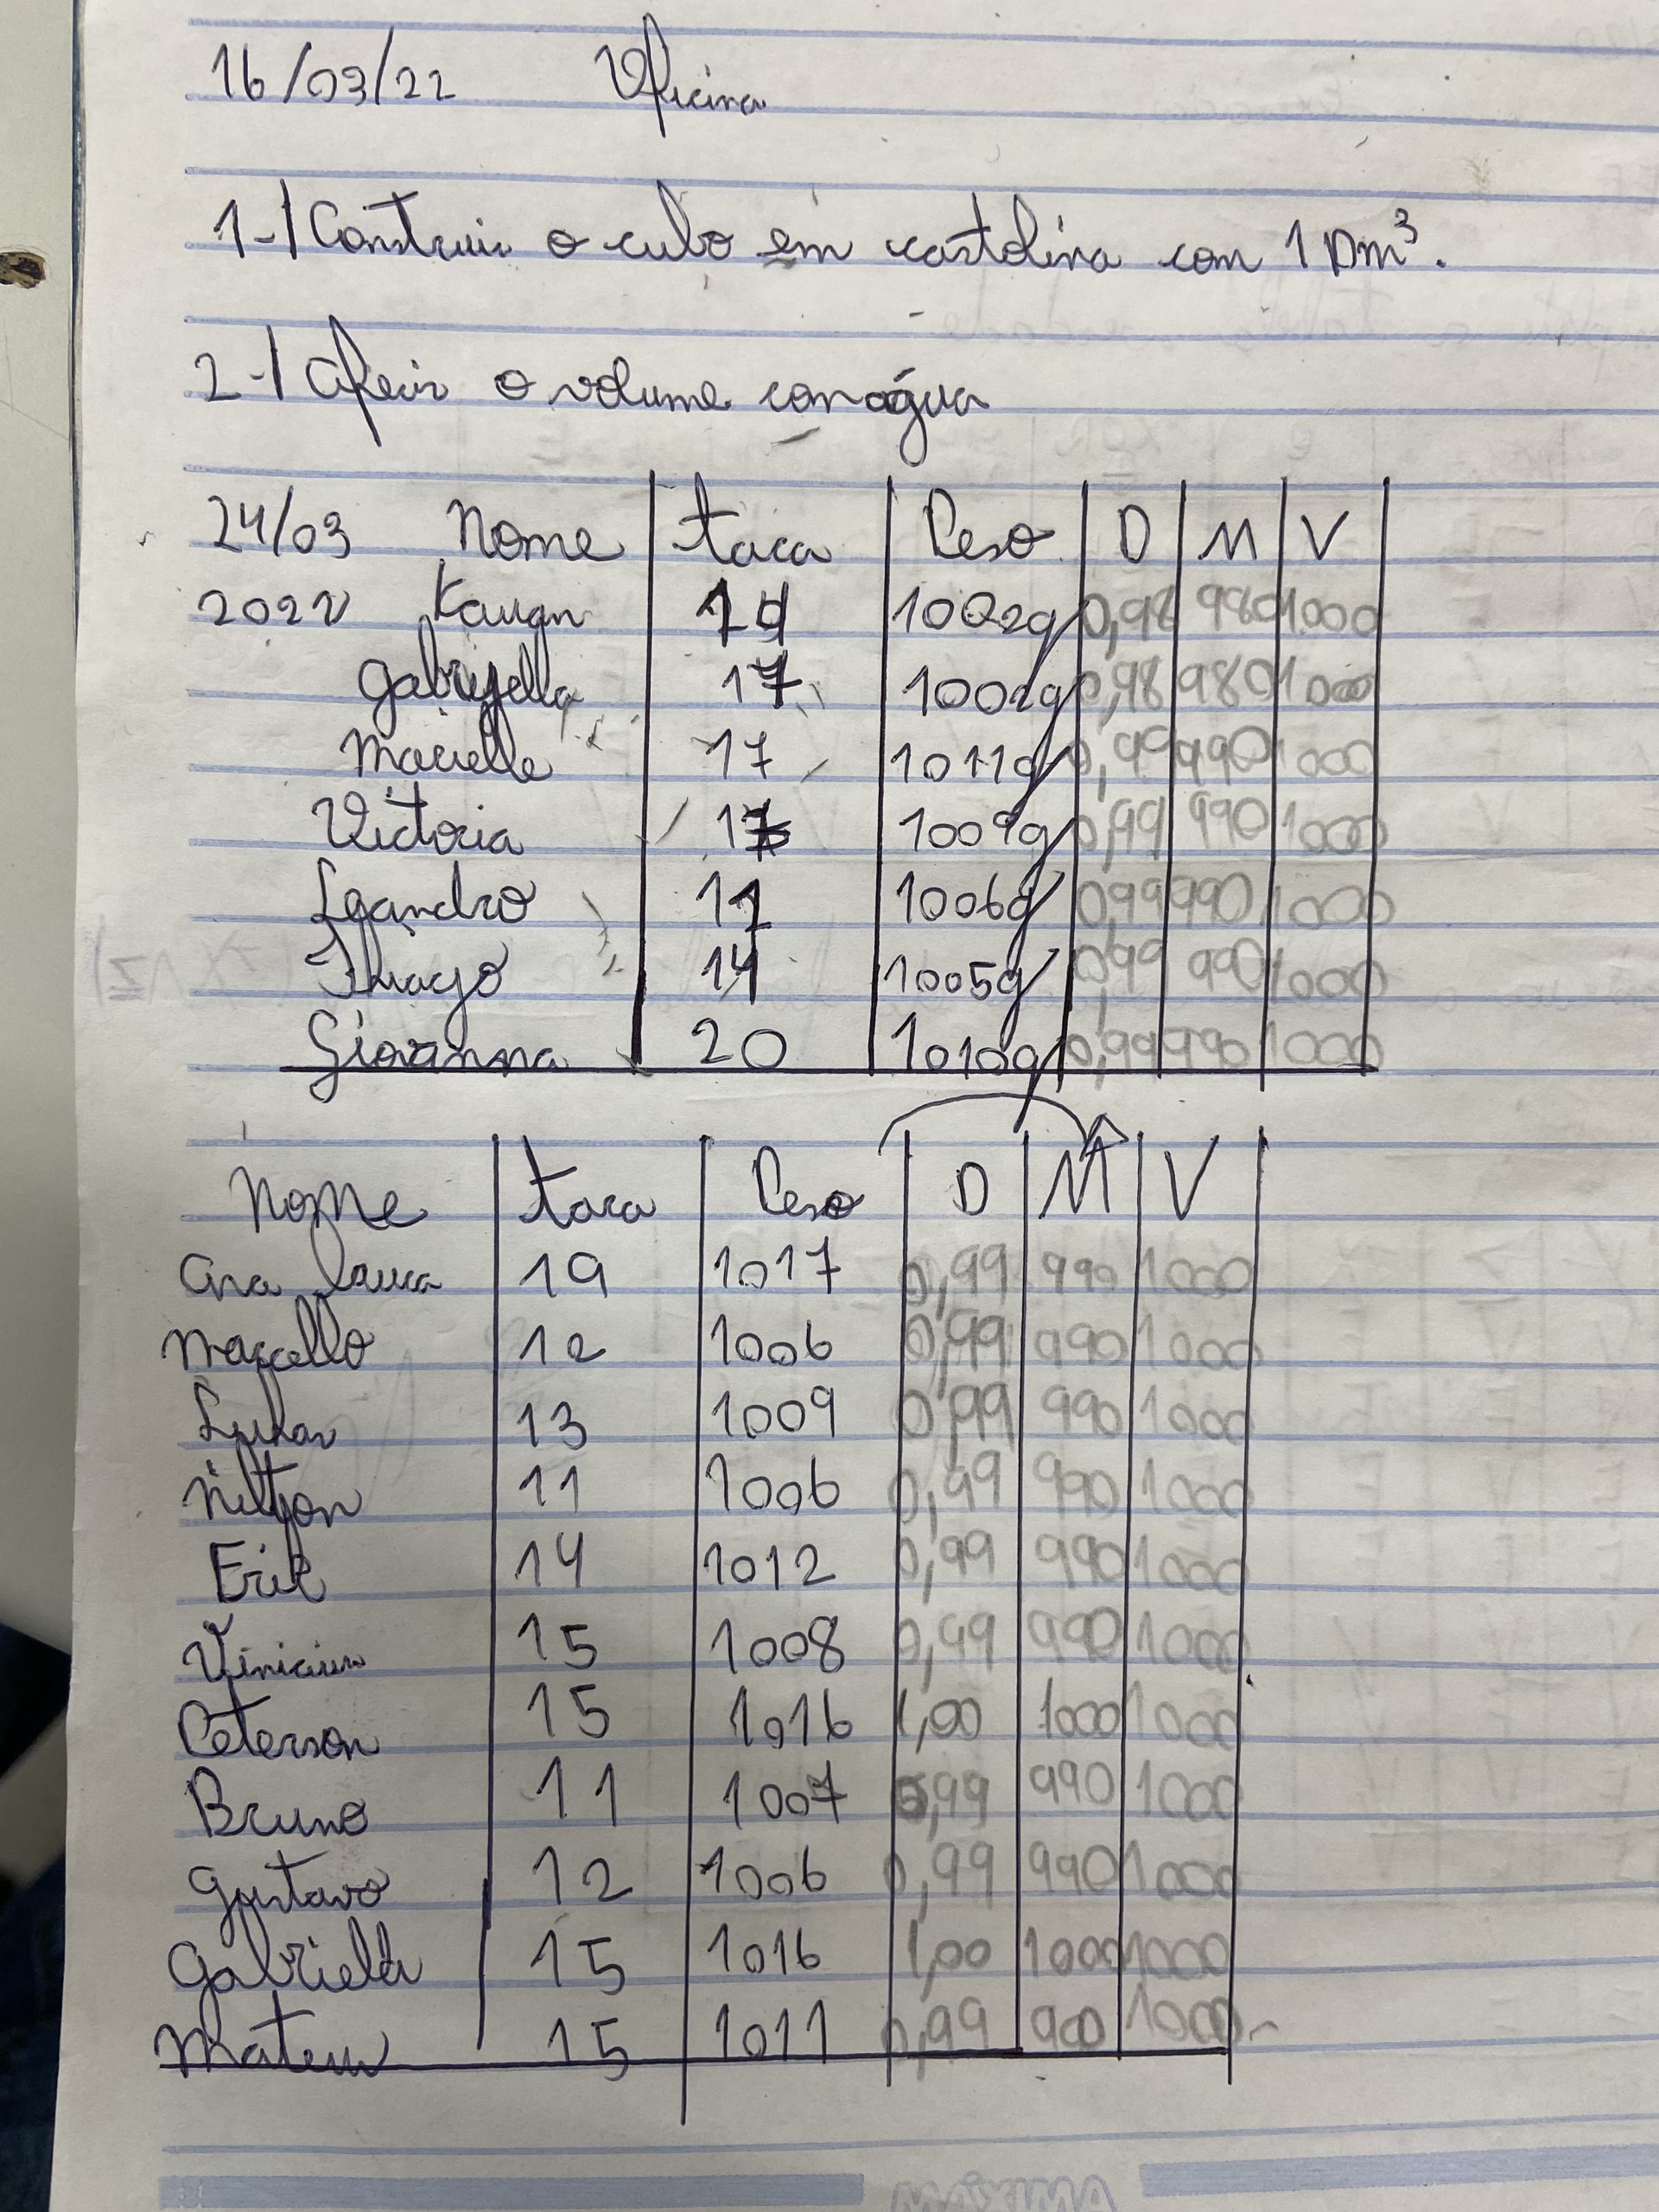 16/03/22 Oficina
1-| Construir o cubo em cartolina com 1 Dm³.
2-| Aferir o volume com água
24/03 Nome | tara | Peso | D | M | V
2022 Kauan 1002g 0,98 980 1000
Gabryella 17 1002g 0,98 980 1000
Marielle 17 1011g 0,99 990 1000
Victoria 1009g 0,99 990 1000
Leandro 1006g 0,99 990 1000
Thiago 14 1005g 0,99 990 1000
Giovanna 20 1010g 0,99 990 1000
Nome | tara | Peso | D | M | V
Ana laura 19 1017 0,99 990 1000
Marcello 12 1006 0,99 990 1000
Lukas 13 1009 0,99 990 1000
Nilton 11 1006 0,99 990 1000
Erik 14 1012 0,99 990 1000
Vinicius 15 1008 0,99 990 1000
Peterson 15 1016 1,00 1000 1000
Bruno 11 1007 0,99 990 1000
Gustavo 12 1006 0,99 990 1000
Gabriela 15 1016 1,00 1000 1000
Mateus 15 1011 0,99 900 1000
MÁXIMA